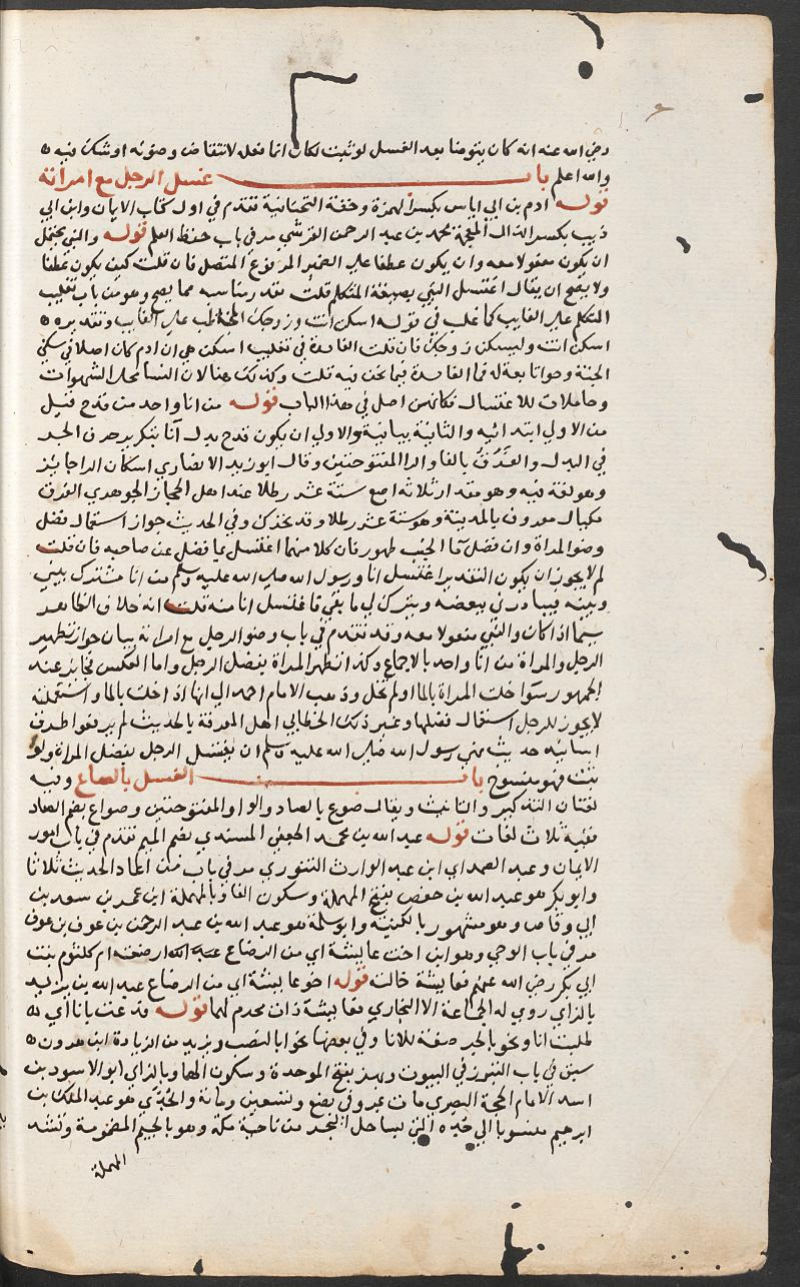 رضي الله عنه انه كان يتوضا بعد الغسل لو ثبت لكان انما فعله لانتقاض وضوئه او شك فيه
والله اعلم باب غسل الرجل مع امراته
قوله ادم بن ابي اياس بكسر الهمزة وخفة التحتانية تقدم في اول كتاب الايمان وابن ابي
ذيب بكسر الذال المعجمة محمد بن عبد الرحمن القرشي مر في باب حفظ العلم قوله والنبي يحتمل
ان يكون مفعولا معه وان يكون عطفا علي الضمير المرفوع المتصل فان قلت كيف يكون عطفا
ولا يصح ان يقال اغتسل النبي بصيغة المتكلم قلت يقدر مناسبه مما يصح وهو من باب تغليب
المتكلم علي الغايب كما غلب في قوله اسكن انت وزوجك المخاطب علي الغايب وتقديره
اسكن انت وليسكن زوجك فان قلت الفايدة في تغليب اسكن هي ان ادم كان اصلا في سكني
الجنة وحوا تابعة له فما الفايدة فيما نحن فيه قلت وكذلك هنا لان النسا محل الشهوات
وحاملات للاغتسال فكانهن اصل في هذا الباب قوله من انا واحد من قدح قيل
من الاولي ابتدائيه والثانية بيانية والاولي ان يكون قدح بدل انا بتكرير حرف الجر
في البدل والفرق بالفا والرا المفتوحتين وقال ابو زيد الانصاري اسكان الرا جايز
وهو لغة فيه وهو مقدار ثلاثه اصع ستة عشر رطلا عند اهل الحجاز الجوهري الفرق
مكيال معروف بالمدينة وهو ستة عشر رطلا وقد يحرك وفي الحديث جواز استعمال فضل
وضو المراة وان فضل ما الجنب طهور فان كلا منهما اغتسل بما فضل عن صاحبه فان قلت
لم لا يجوز ان يكون التقدير اغتسل انا ورسول الله صلي الله عليه وسلم من انا مشترك بيني
وبينه فيبادرني ببعضه ويترك لي ما بقي فاغتسل انا منه قلت انه خلاف الظاهر
سيما اذا كان والنبي مفعولا معه وقد تقدم في باب وضو الرجل مع امراته بيان جواز تطهير
الرجل والمراة من انا واحد بالاجماع وكذا تطهر المراة بفضل الرجل واما العكس فجايز عند
الجمهور سوا خلت المراة بالما او لم تخل وذهب الامام احمد الي انها اذا خلت بالما واستعملته
لا يجوز للرجل استعمال فضلها وغير ذلك الخطابي اهل المعرفة بالحديث لم يرفعوا طرف
اسانيد حديث نهي رسول الله صلي الله عليه وسلم ان يغتسل الرجل بفضل المراة ولو
ثبت فهو منسوخ باب الغسل بالصاع وفيه
لغتان التذكير والتانيث ويقال صوع بالصاد والواو المفتوحتين وصواع بضم الصاد
ففيه ثلاث لغات قوله عبد الله بن محمد الجعفي المسندي بضم الميم تقدم في باب امور
الايمان وعبد الصمد اي ابن عبد الوارث التنوري مر في باب من اعاد الحديث ثلاثا
وابو بكر هو عبد الله بن حفص بفتح المهملة وسكون الفا وبالمهملة ابن عمر بن سعد بن
ابي وقاص وهو مشهور بالكنية وابو سلمة هو عبد الله بن عبد الرحمن بن عوف
مر في باب الوحي وهو ابن اخت عايشة اي من الرضاع ارضعته ام كلثوم بنت
ابي بكر رضي الله عنهم فعايشة خالته قوله اخو عايشة اي من الرضاع عبد الله بن يزيد
بالزاي روي له الجماعة الا البخاري فعايشة ذات محرم لهما قوله فدعت بانا اي
طلبت انا ونحو بالجر صفة للانا وفي بعضها نحوا بالنصب ويزيد من الزيادة ابن هرون
سبق في باب التبرز في البيوت وبهز بفتح الموحدة وسكون الها وبالزاي ابو الاسود بن
اسد الامام الحجة البصري مات بمرو في بضع وتسعين ومائة والجدي هو عبد الملك بن
ابرهيم منسوبا الي جده التي بساحل البحر من ناحية مكة وهو بالجيم المضمومة وتشد
المهملة